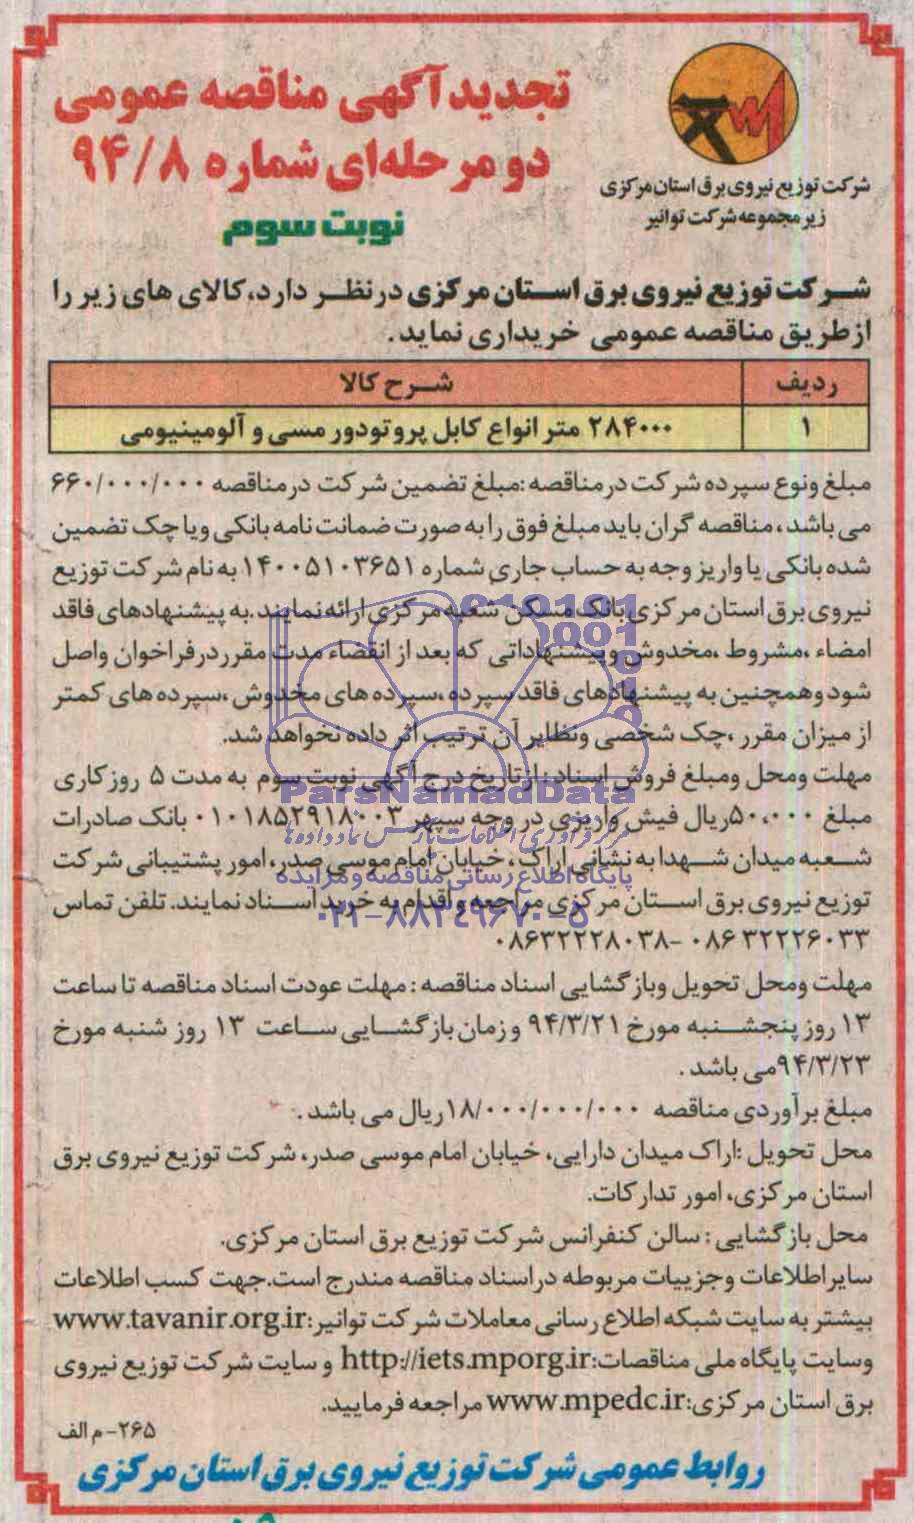 تجدید آگهی مناقصه عمومی
دو مرحله‌ای شماره ۹۴/۸
نوبت سوم
شرکت توزیع نیروی برق استان مرکزی
زیر مجموعه شرکت توانیر
شرکت توزیع نیروی برق استان مرکزی در نظر دارد، کالای های زیر را
از طریق مناقصه عمومی خریداری نماید.
ردیف شرح کالا
۱ ۲۸۴۰۰۰ متر انواع کابل پروتودور مسی و آلومینیومی
مبلغ ونوع سپرده شرکت درمناقصه :مبلغ تضمین شرکت درمناقصه ۶۶۰/۰۰۰/۰۰۰
می باشد، مناقصه گران باید مبلغ فوق را به صورت ضمانت نامه بانکی ویا چک تضمین
شده بانکی یا واریز وجه به حساب جاری شماره ۱۴۰۰۵۱۰۳۶۵۱ به نام شرکت توزیع
نیروی برق استان مرکزی بانک مسکن شعبه مرکزی ارائه نمایند .به پیشنهادهای فاقد
امضاء ،مشروط ،مخدوش وپیشنهاداتی که بعد از انقضاء مدت مقرردرفراخوان واصل
شود وهمچنین به پیشنهادهای فاقد سپرده ،سپرده های مخدوش ،سپرده های کمتر
از میزان مقرر ،چک شخصی ونظایر آن ترتیب اثر داده نخواهد شد.
مهلت ومحل ومبلغ فروش اسناد: ازتاریخ درج آگهی نوبت سوم به مدت ۵ روز کاری
مبلغ ۵۰،۰۰۰ریال فیش واریزی در وجه سپهر ۰۱۰۱۸۵۲۹۱۸۰۰۳ بانک صادرات
شعبه میدان شهدا به نشانی اراک، خیابان امام موسی صدر، امور پشتیبانی شرکت
توزیع نیروی برق استان مرکزی مراجعه و اقدام به خرید اسناد نمایند. تلفن تماس
۰۸۶۳۲۲۲۶۰۳۳ -۰۸۶۳۲۲۲۸۰۳۸
مهلت ومحل تحویل وبازگشایی اسناد مناقصه : مهلت عودت اسناد مناقصه تا ساعت
۱۳ روز پنجشنبه مورخ ۹۴/۳/۲۱ و زمان بازگشایی ساعت ۱۳ روز شنبه مورخ
۹۴/۳/۲۳می باشد .
مبلغ برآوردی مناقصه ۱۸/۰۰۰/۰۰۰/۰۰۰ریال می باشد .
محل تحویل :اراک میدان دارایی، خیابان امام موسی صدر، شرکت توزیع نیروی برق
استان مرکزی، امور تدارکات.
محل بازگشایی : سالن کنفرانس شرکت توزیع برق استان مرکزی.
سایراطلاعات وجزییات مربوطه در اسناد مناقصه مندرج است.جهت کسب اطلاعات
بیشتر به سایت شبکه اطلاع رسانی معاملات شرکت توانیر:www.tavanir.org.ir
وسایت پایگاه ملی مناقصات:http://iets.mporg.ir و سایت شرکت توزیع نیروی
برق استان مرکزی:www.mpedc.ir مراجعه فرمایید.
۲۶۵- م الف
روابط عمومی شرکت توزیع نیروی برق استان مرکزی
ParsNamadData
مرکز فرآوری اطلاعات پارس نماد داده ها
پایگاه اطلاع رسانی مناقصه و مزایده
۰۲۱-۸۸۳۴۹۶۷۰-۵